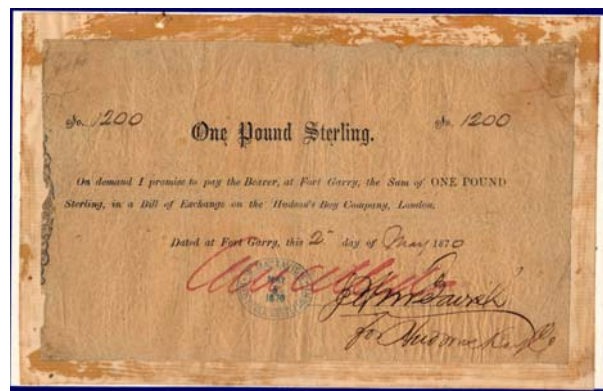 No. 1200 No. 1200
One Pound Sterling.
On demand I promise to pay the Bearer, at Fort Garry, the Sum of ONE POUND
Sterling, in a Bill of Exchange on the Hudson's Bay Company, London.
Dated at Fort Garry, this 2nd day of May 1870
Cancelled
MAY
2
1870
J H McTavish
for Hudson's Bay Co